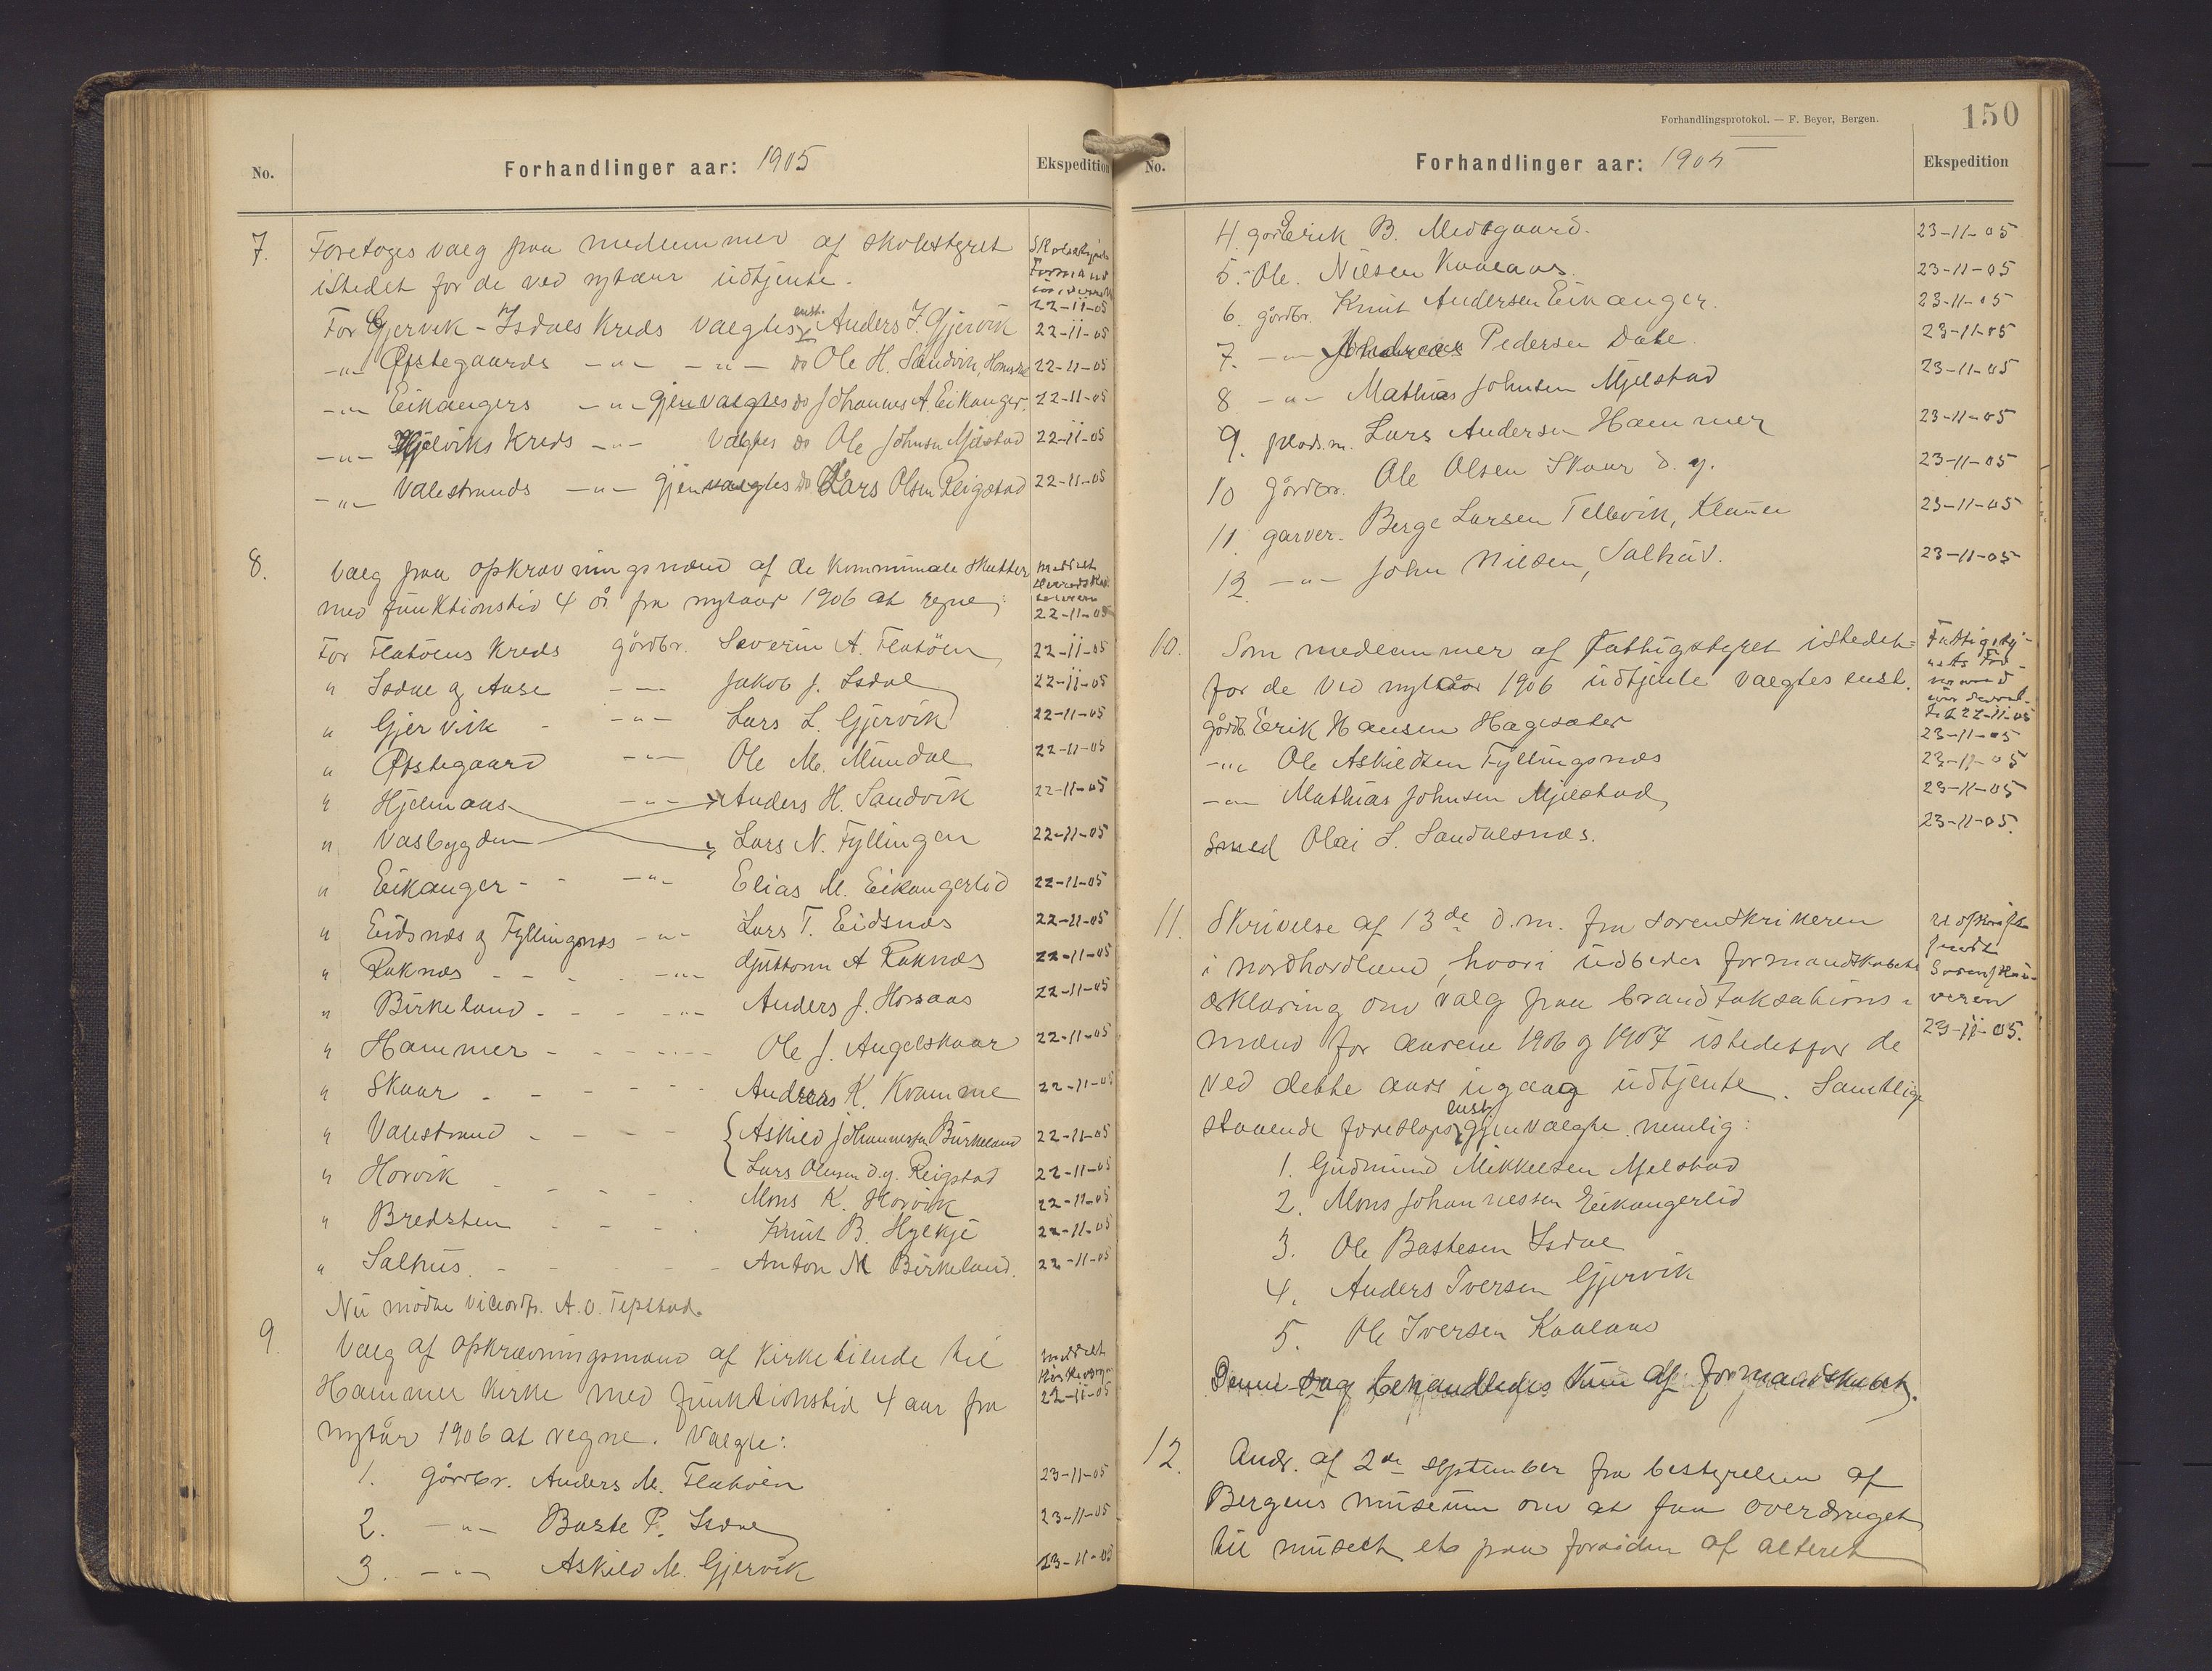 No.
Forhandlinger aar: 1905
Ekspedition
7. Foretoges valg paa medlemmer af skolestyret
istedet for de ved nytaar udtjente.
Skolestyrets
Formand
underrett
22-11-05
For Gjervik-Isdals Kreds valgtes enst. Anders J. Gjervik 22-11-05
-"- Øfstegaards -"- -"- do Ole H. Sandvik, Homsdal 22-11-05
-"- Eikangers -"- gjenvalgtes do Johannes A. Eikanger. 22-11-05
-"- Hjelviks Kreds -"- valgtes do Ole Johnsen Mjelstad 22-11-05
-"- Valestrands -"- gjenvalgtes do Lars Olsen Reigstad 22-11-05
8. Valg paa opkrævningsmænd af de kommunale skatter
med funktionstid 4 år fra nytaar 1906 at regne;
meddelt
Herredskas-
sereren
22-11-05
For Flatøens Kreds gårdbr. Severin A. Flatøen 22-11-05
" Isdal og Aase -"- Jakob J. Isdal 22-11-05
" Gjervik - -"- Lars L. Gjervik 22-11-05
" Øfstegaard -"- Ole M. Mundal 22-11-05
" Hjelmaas -"- Anders H. Sandvik 22-11-05
" Vasbygden Lars N. Fyllingen 22-11-05
" Eikanger - - -"- Elias M. Eikangerlid 22-11-05
" Eidsnæs og Fyllingsnæs -"- Lars T. Eidsnæs 22-11-05
" Raknæs - - -"- Guttorm A Raknæs 22-11-05
" Birkeland - - -"- Anders J. Horsaas 22-11-05
" Hammer - - - -"- Ole J. Angelskaar 22-11-05
" Skaar - - - - Andreas K. Kvamme 22-11-05
" Valestrand - - - - Askild Johannessen Birkeland 22-11-05
Lars Olsen d.y. Reigstad 22-11-05
" Horvik - - - - Mons K. Horvik 22-11-05
" Bredsten - - - Knut B. Hylkje 22-11-05
" Salhus - - - - - Anton M Birkeland. 22-11-05
Nu mødte viceordf. A. O. Tepstad.
9. Valg af opkrævningsmænd af Kirketiende til
Hammer Kirke med funktionstid 4 aar fra
nytår 1906 at regne. Valgte:
meddelt
Kirkeværgen
22-11-05
1. gårdbr. Anders M. Flatøen 23-11-05
2. -"- Baste P. Isdal 23-11-05
3. -"- Askild M. Gjervik 23-11-05
Forhandlingsprotokol. — F. Beyer, Bergen.
150
No.
Forhandlinger aar: 1905
Ekspedition
4. gårdbr. Erik B. Midtgaard. 23-11-05
5. -"- Ole Nilsen Kaalaas. 23-11-05
6. gårdbr. Knut Andersen Eikanger. 23-11-05
7. -"- Andreas Pedersen Dale. 23-11-05
8 -"- Mathias Johnsen Mjelstad 23-11-05
9. pladsm. Lars Andersen Hammer 23-11-05
10 gårdbr. Ole Olsen Skaar d.y. 23-11-05
11. garver. Berge Larsen Tellevik, Klauven 23-11-05
12 -"- John Nilsen, Salhus. 23-11-05
10. Som medlemmer af Fattigstyret istedet-
for de ved nytaar 1906 udtjente valgtes enst.
Fattigsty-
rets For-
mand
underret-
tet 22-11-05
gårdb. Erik Hansen Hagesæter 23-11-05
-"- Ole Askildsen Fyllingsnæs 23-11-05
-"- Mathias Johnsen Mjelstad 23-11-05
smed Olai L. Sandalsnæs. 23-11-05.
11. Skrivelse af 13de d.m. fra sorenskriveren
i nordhordland, hvori udbedes formandskabets
erklæring om valg paa brandtaksations-
mænd for aarene 1906 og 1907 istedetfor de
ved dette aars udgang udtjente. Samtlige
staaende foreslaaes enst gjenvalgte nemlig:
udskrift
sendt
Sorenskri-
veren
23-11-05.
1. Gudmund Mikkelsen Mjelstad
2. Mons Johannessen Eikangerlid
3. Ole Bastesen Isdal
4. Anders Iversen Gjervik
5. Ole Iversen Kaalaas
Denne sag behandledes kun af formandskabet.
12. Andr. af 2de september fra bestyrelsen af
Bergens museum om at faa overdraget
til museet et paa forsiden af alteret